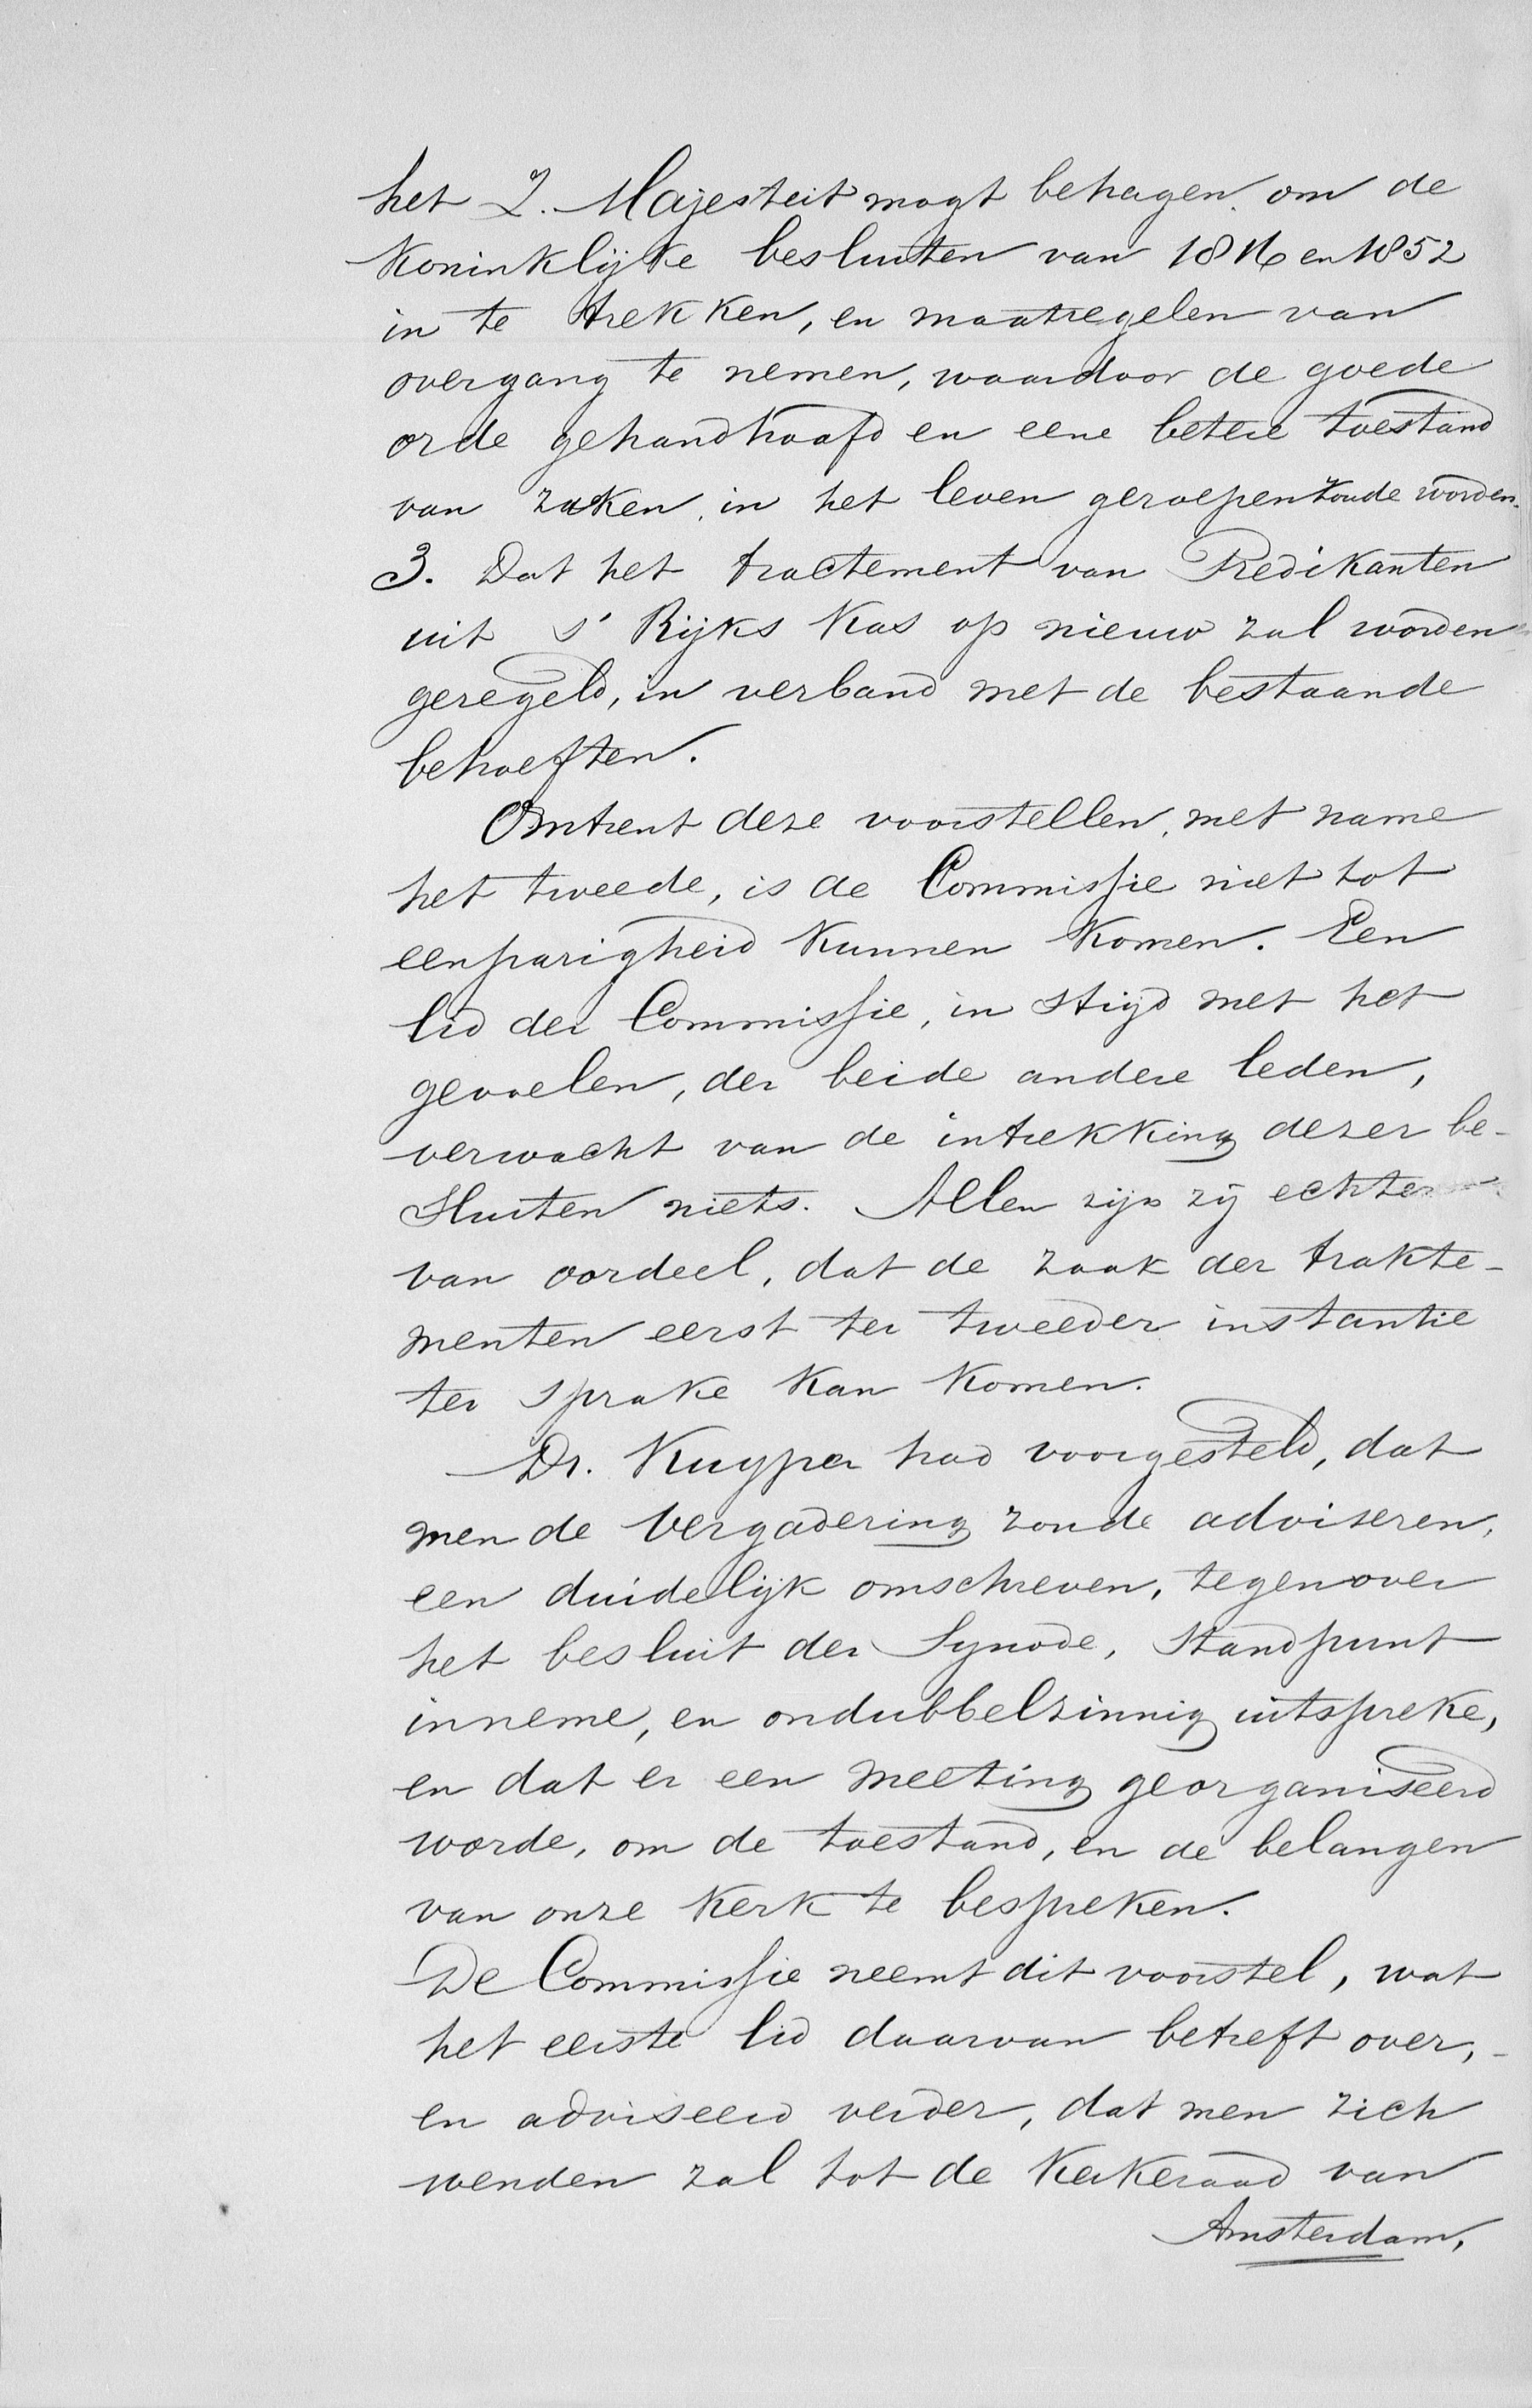 het Z. Majesteit mogt behagen om de
Koninklijke besluiten van 1816 en 1852
in te trekken, en maatregelen van
overgang te nemen, waardoor de goede
orde gehandhaafd en eene betere toestand
van zaken, in het leven geroepen zoude worden.
3. Dat het tractement van Predikanten
uit s' Rijks Kas op nieuw zal worden
geregeld, in verband met de bestaande
behoeften.
Omtrent deze voorstellen, met name
het tweede, is de Commissie niet tot
eenparigheid kunnen komen. Een
lid der Commissie, in strijd met het
gevoelen, der beide andere leden,
verwacht van de intrekking dezer be-
sluiten niets. Allen zijn zij echter
van oordeel, dat de zaak der trakte-
menten eerst ter tweeder instantie
ter sprake kan komen.
Dr. Kuyper had voorgesteld, dat
men de Vergadering zoude adviseren,
een duidelijk omschreven, tegenover
het besluit der Synode, standpunt
inneme, en ondubbelzinnig uitspreke,
en dat er een meeting georganiseerd
worde, om de toestand, en de belangen
van onze Kerk te bespreken.
De Commissie neemt dit voorstel, wat
het eerste lid daarvan betreft over,-
en adviseerd verder, dat men zich
wenden zal tot de Kerkeraad van
Amsterdam,